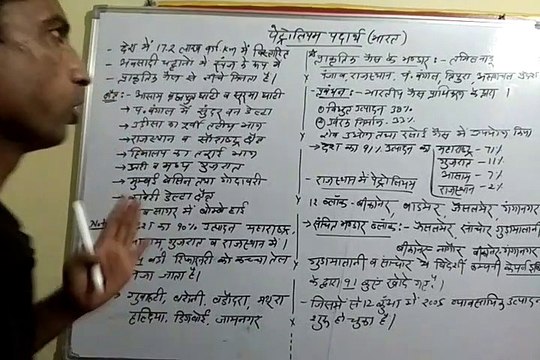 पेट्रोलियम पदार्थ (भारत)
- देश में 17.2 लाख वर्ग KM में विस्तारित
- अवसादी चट्टानों में द्रव के रूप में
- प्राकृतिक गैस से नीचे मिलता है।
क्षेत्र:- असम ब्रह्मपुत्र घाटी व सूरमा घाटी
→ प. बंगाल में सुंदर वन डेल्टा
→ उड़ीसा का पूर्वी तटीय भाग
→ राजस्थान व सौराष्ट्र क्षेत्र
→ हिमालय का तराई भाग
→ उत्तरी व मध्य गुजरात
→ मुम्बई बेसिन तथा गोदावरी
→ कावेरी डेल्टा क्षेत्र
सागर में बॉम्बे हाई
का 90% उत्पादन महाराष्ट्र,
गुजरात व राजस्थान में।
बड़ी रिफाइनरी को कच्चा तेल
जाता है।
- गुवाहटी, बरौनी, बड़ौदरा, मथुरा
हल्दिया, डिगबोई, जामनगर
प्राकृतिक गैस के भण्डार:- तमिलनाडु
पंजाब, राजस्थान, प. बंगाल, त्रिपुरा, अरुणाचल
प्रबंधन:- भारतीय गैस प्राधिकरण के द्वारा।
① विद्युत उत्पादन 38%
② उर्वरक निर्माण - 33%
उद्योग तथा रसोई गैस में उपयोग किया
→ देश का 91% उत्पादन का महाराष्ट्र - 71%
गुजरात - 11%
आसाम - 7%
राजस्थान - 2%
- राजस्थान में पेट्रोलियम
12 ब्लॉक:- बीकानेर, बाडमेर, जैसलमेर, गंगानगर
→ संचित भण्डार ब्लॉक:- जैसलमेर, सांचोर गुडामालानी
बीकानेर नागौर बीकानेर, गंगानगर
गुडामालानी व सांचोर में विदेशी कम्पनी
के द्वारा 91 कुएं खोदे गए हैं।
- जिसमें से 12 कुंओं में 2005 व्यावसायिक उत्पादन
शुरू हो चुका है।